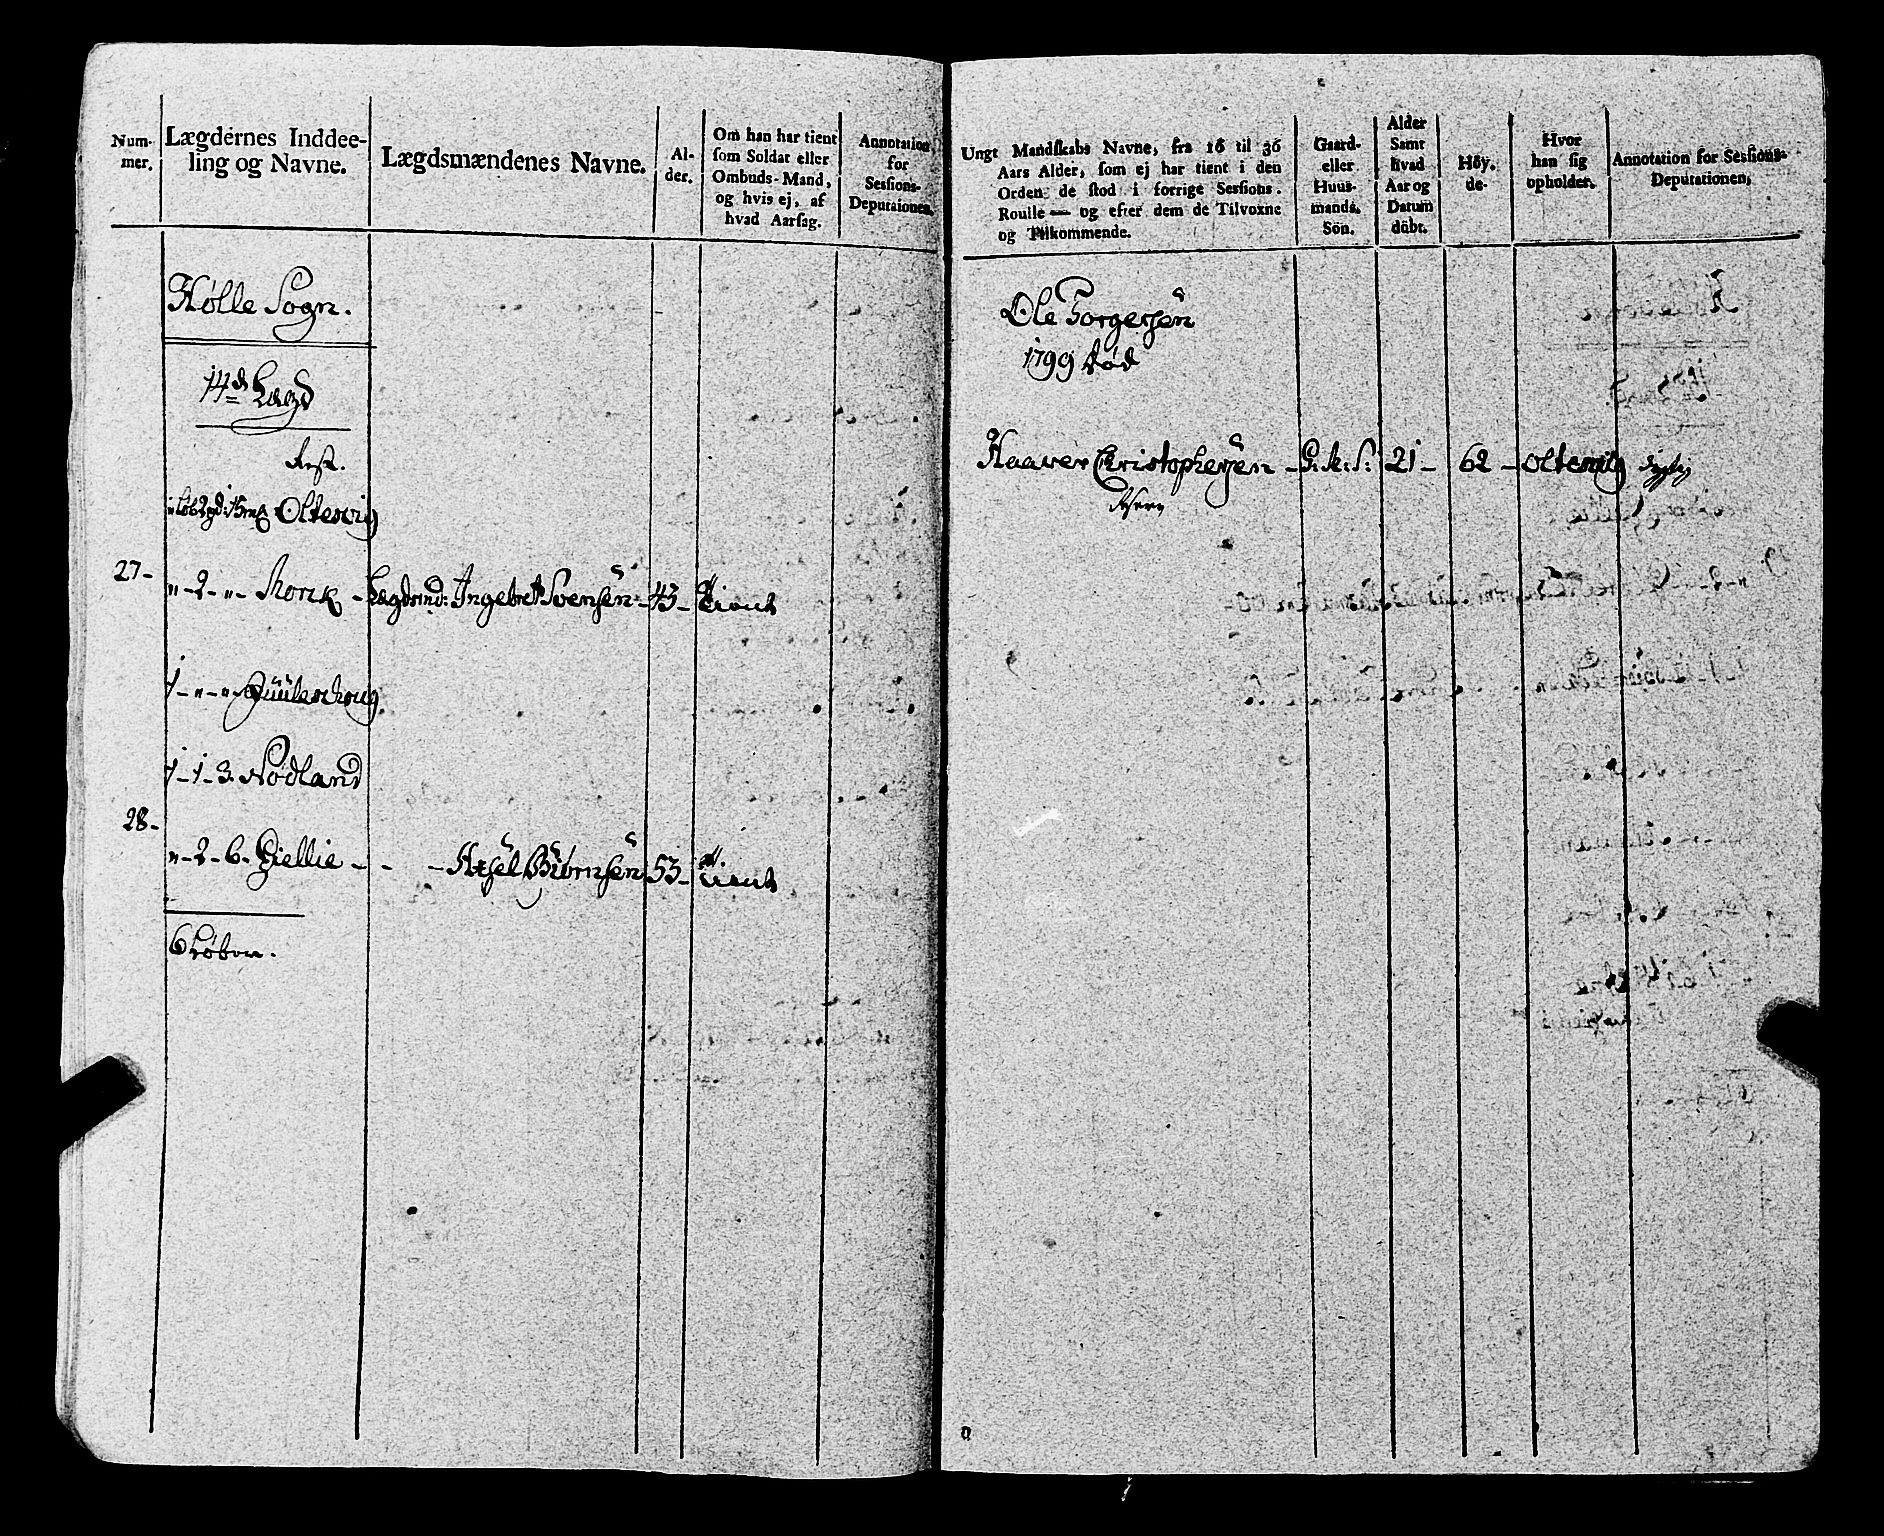 Num-
mer.
Lægdernes Inddee-
ling og Navne.
Lægdsmændenes Navne.
Al-
der.
Om han har tient
som Soldat eller
Ombuds-Mand,
og hvis ej, af
hvad Aarsag.
Annotation
for
Sessions-
Deputaionen.
Hølle Sogn.
14de Lægd
Rest.
Oltesvig
27-
"-2-"- Mørk - Lægdsmd: Ingebret Svensen - 43- Tient
1-"-"-
1-1-3. Nødland
28-
"-2-6- Giellie - - - Axsel Biørnsen 53- Tient
6 Løber.
Ungt Mandskabs Navne, fra 16 til 36
Aars Alder, som ej har tient i den
Orden de stod i forrige Sessions-
Roulle — og efter dem de Tilvoxne
og Tilkommende.
Gaard-
eller
Huus-
mands.
Søn.
Alder
Samt
hvad
Aar og
Datum
døbt.
Høy-
de-
Hvor
han sig
opholder.
Annotation for Sessions-
Deputationen,
Ole Torgersen
1799 død
Haaver Christophersen - G: M: S: 21- 62 - Oltesvig dygtig